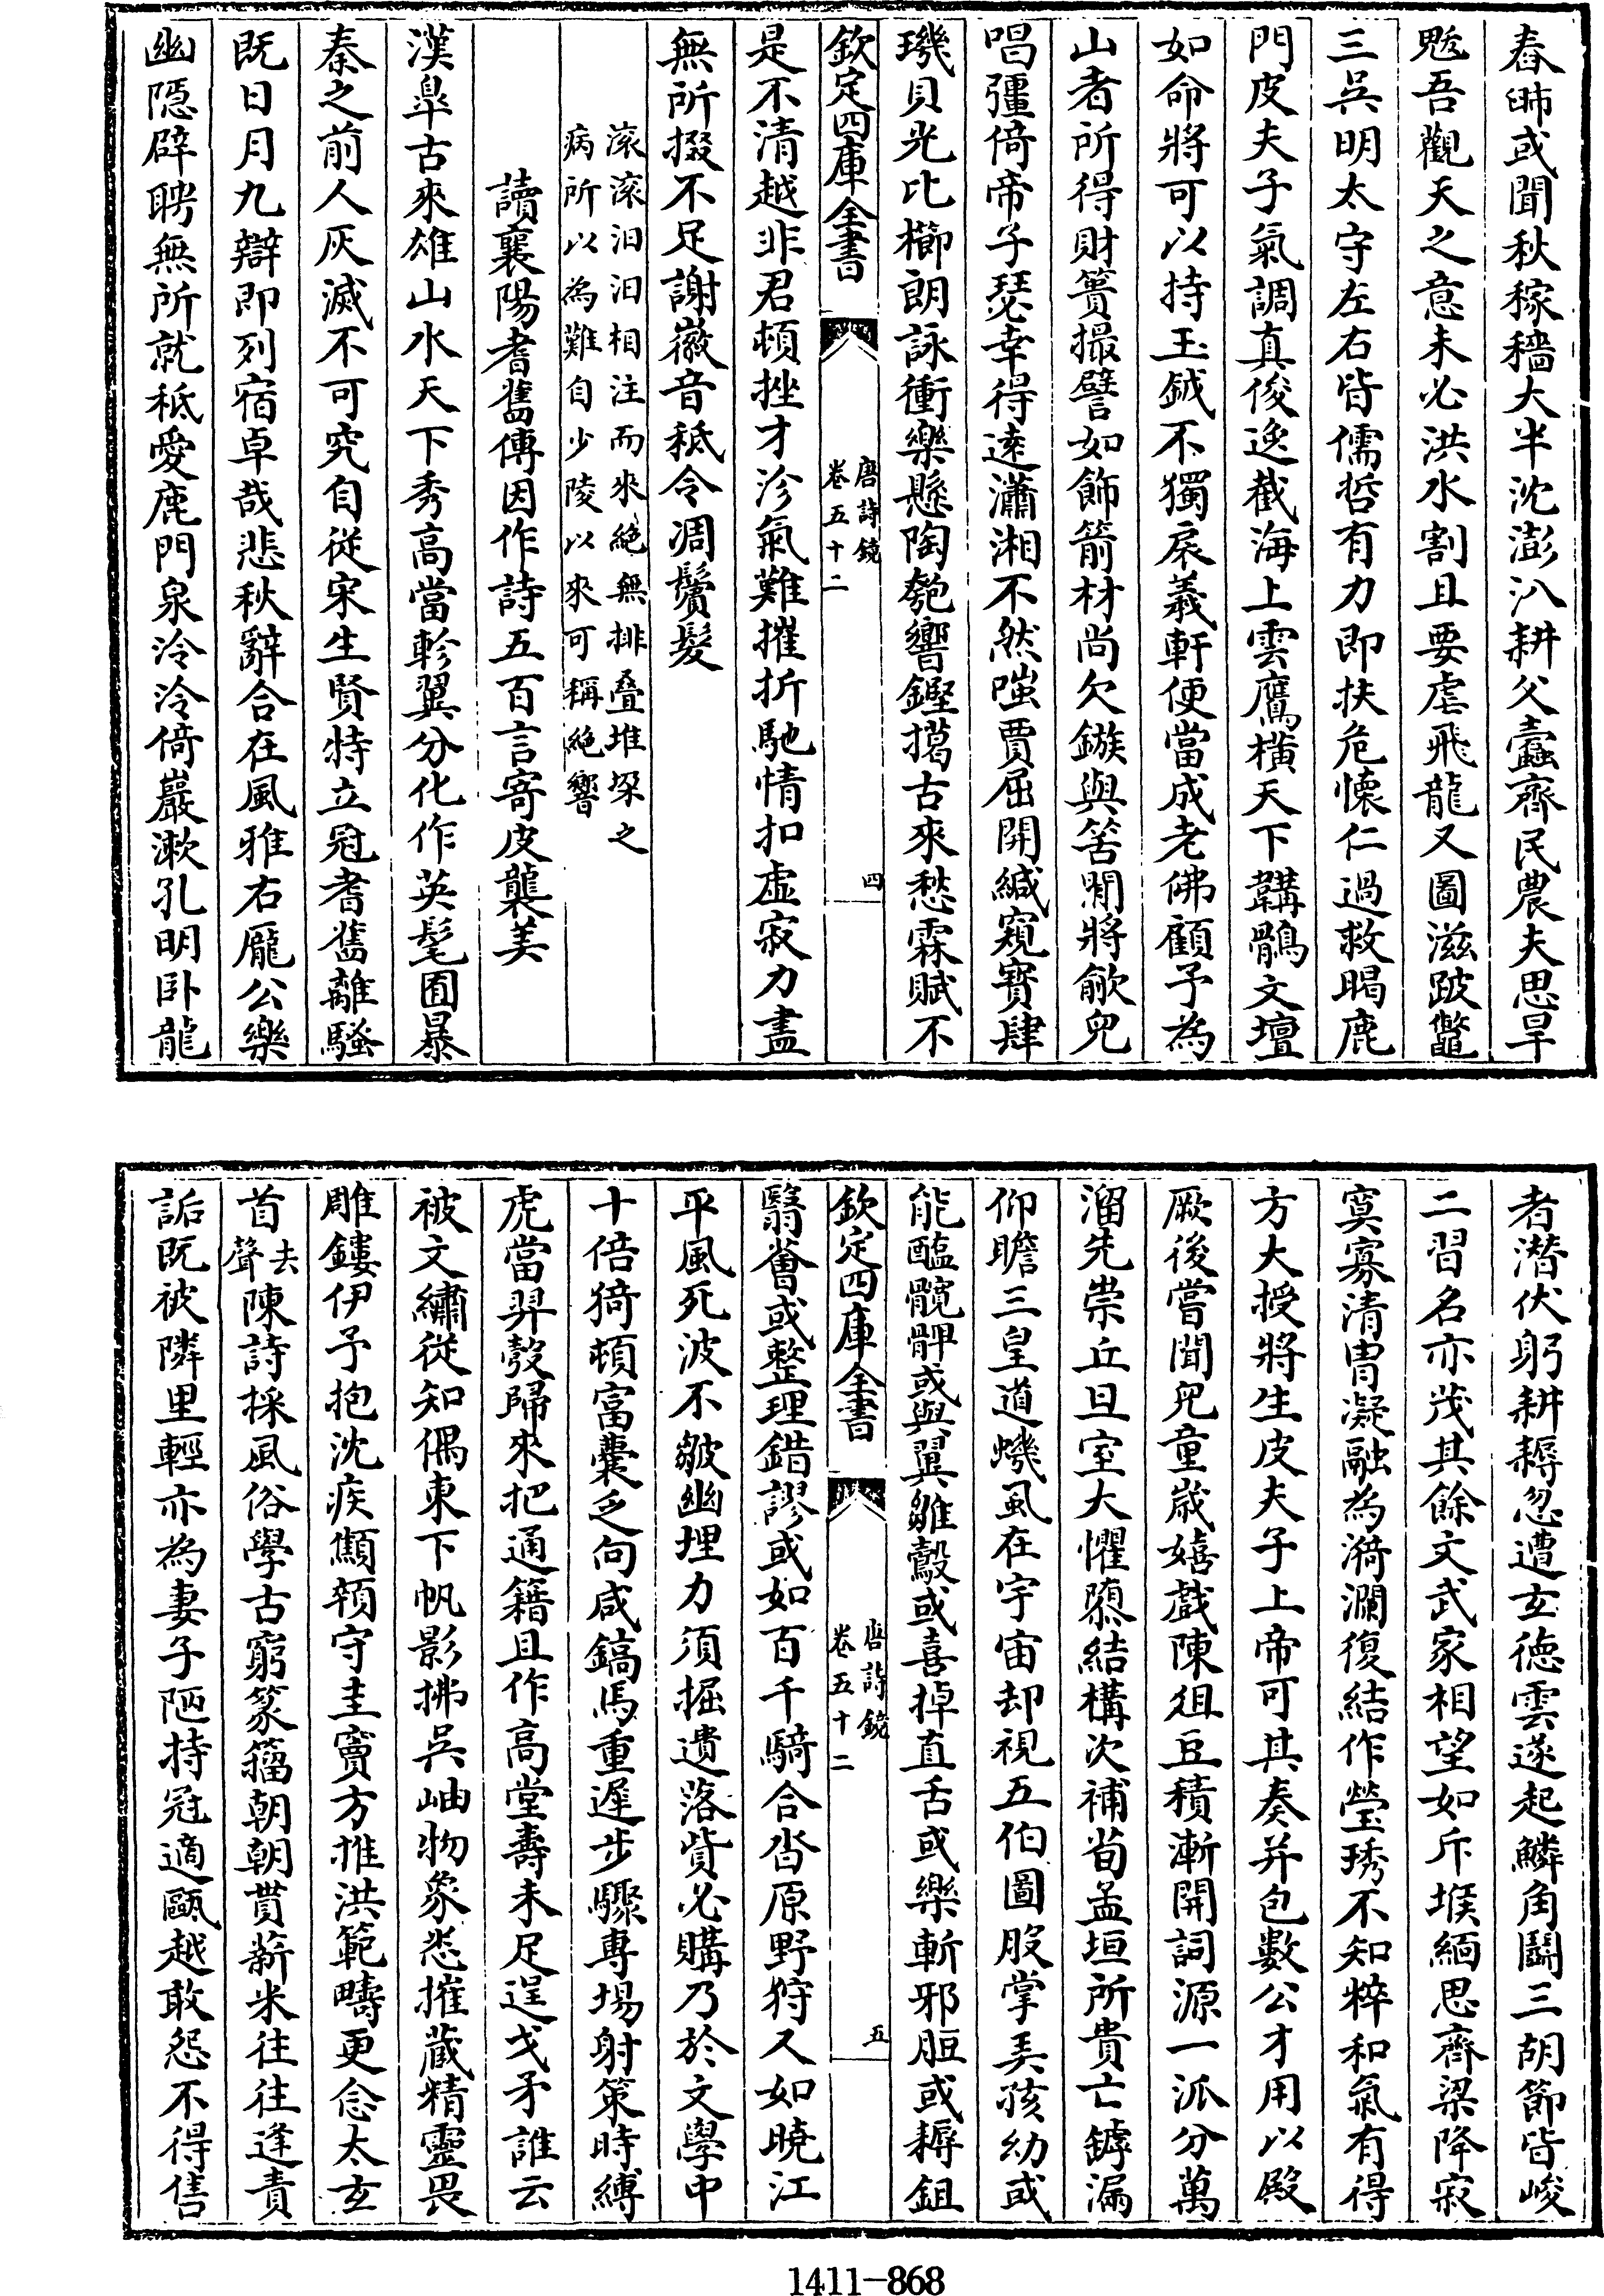 舂㫪或聞秋稼穡大半沈澎汃耕父蠹齊民農夫思旱
魃吾觀天之意未必洪水割且要虐飛龍又圖滋跛鼈
三吳明太守左右皆儒哲有力即扶危懐仁過救暍鹿
門皮夫子氣調真俊逸截海上雲鷹横天下韝鶻文壇
如命將可以持玉鉞不獨扆羲軒便當成老佛顧予為
山者所得財簣撮譬如飾箭材尚欠鏃與筈閒將歈兒
唱彊倚帝子瑟幸得逺瀟湘不然嗤賈屈開緘窺寳肆
璣貝光比櫛朗詠衝樂懸陶匏響鏗擖古來愁霖賦不
欽定四庫全書 唐詩鏡 卷五十二 四
是不清越非君頓挫才沴氣難摧折馳情扣虚寂力盡
無所掇不足謝徽音秪令凋鬢髪
滚滚汩汩相注而來絶無排叠堆垜之
病所以為難自少陵以來可稱絶響
讀襄陽耆舊傳因作詩五百言寄皮襲美
漢臯古來雄山水天下秀高當軫翼分化作英髦囿暴
秦之前人灰滅不可究自從宋生賢特立冠耆舊離騷
既日月九辯即列宿卓哉悲秋辭合在風雅右龎公樂
幽隠辟聘無所就秪愛鹿門泉泠泠倚巖漱孔明卧龍
者潛伏躬耕耨忽遭玄徳雲遂起鱗角鬭三胡節皆峻
二習名亦茂其餘文武家相望如斥堠緬思齊梁降寂
寞寡清胄凝融為漪瀾復結作瑩琇不知粹和氣有得
方大授將生皮夫子上帝可其奏并包數公才用以殿
厥後嘗聞兒童嵗嬉戲陳俎豆積漸開詞源一派分萬
溜先崇丘旦室大懼隳結構次補荀孟垣所貴亡罅漏
仰瞻三皇道蟣虱在宇宙却視五伯圖股掌弄孩幼或
能醢髖髀或與翼雛鷇或喜掉直舌或樂斬邪脰或耨鉏
欽定四庫全書 唐詩鏡 卷五十二 五
翳薈或整理錯謬或如百千騎合沓原野狩又如曉江
平風死波不皺幽埋力須掘遺落貲必購乃於文學中
十倍猗頓富囊乏向咸鎬馬重遲步驟專場射策時縛
虎當羿彀歸來把通籍且作高堂壽未足逞戈矛誰云
被文繡從知偶東下帆影拂吳岫物象悉摧藏精靈畏
雕鏤伊予抱沈疾顦顇守圭竇方推洪範疇更念太玄
首去聲陳詩採風俗學古窮篆籀朝朝貰薪米往往逢責
詬既被隣里輕亦為妻子陋持冠適甌越敢怨不得售
1411-868